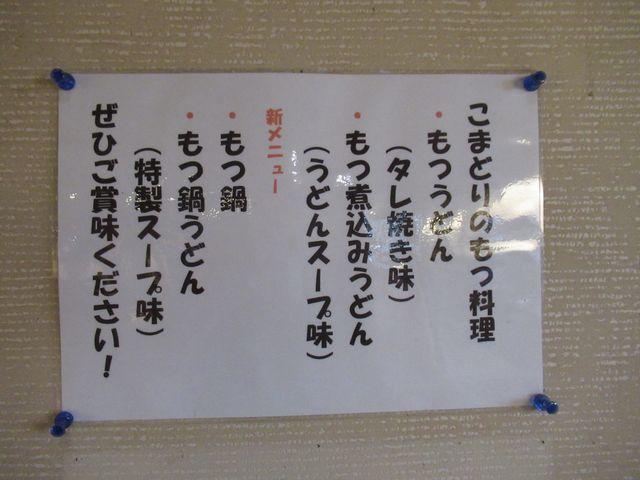 こまどりのもつ料理
・もつうどん
(タレ焼き味)
・もつ煮込みうどん
(うどんスープ味)
新メニュー
・もつ鍋
・もつ鍋うどん
(特製スープ味)
ぜひご賞味ください!